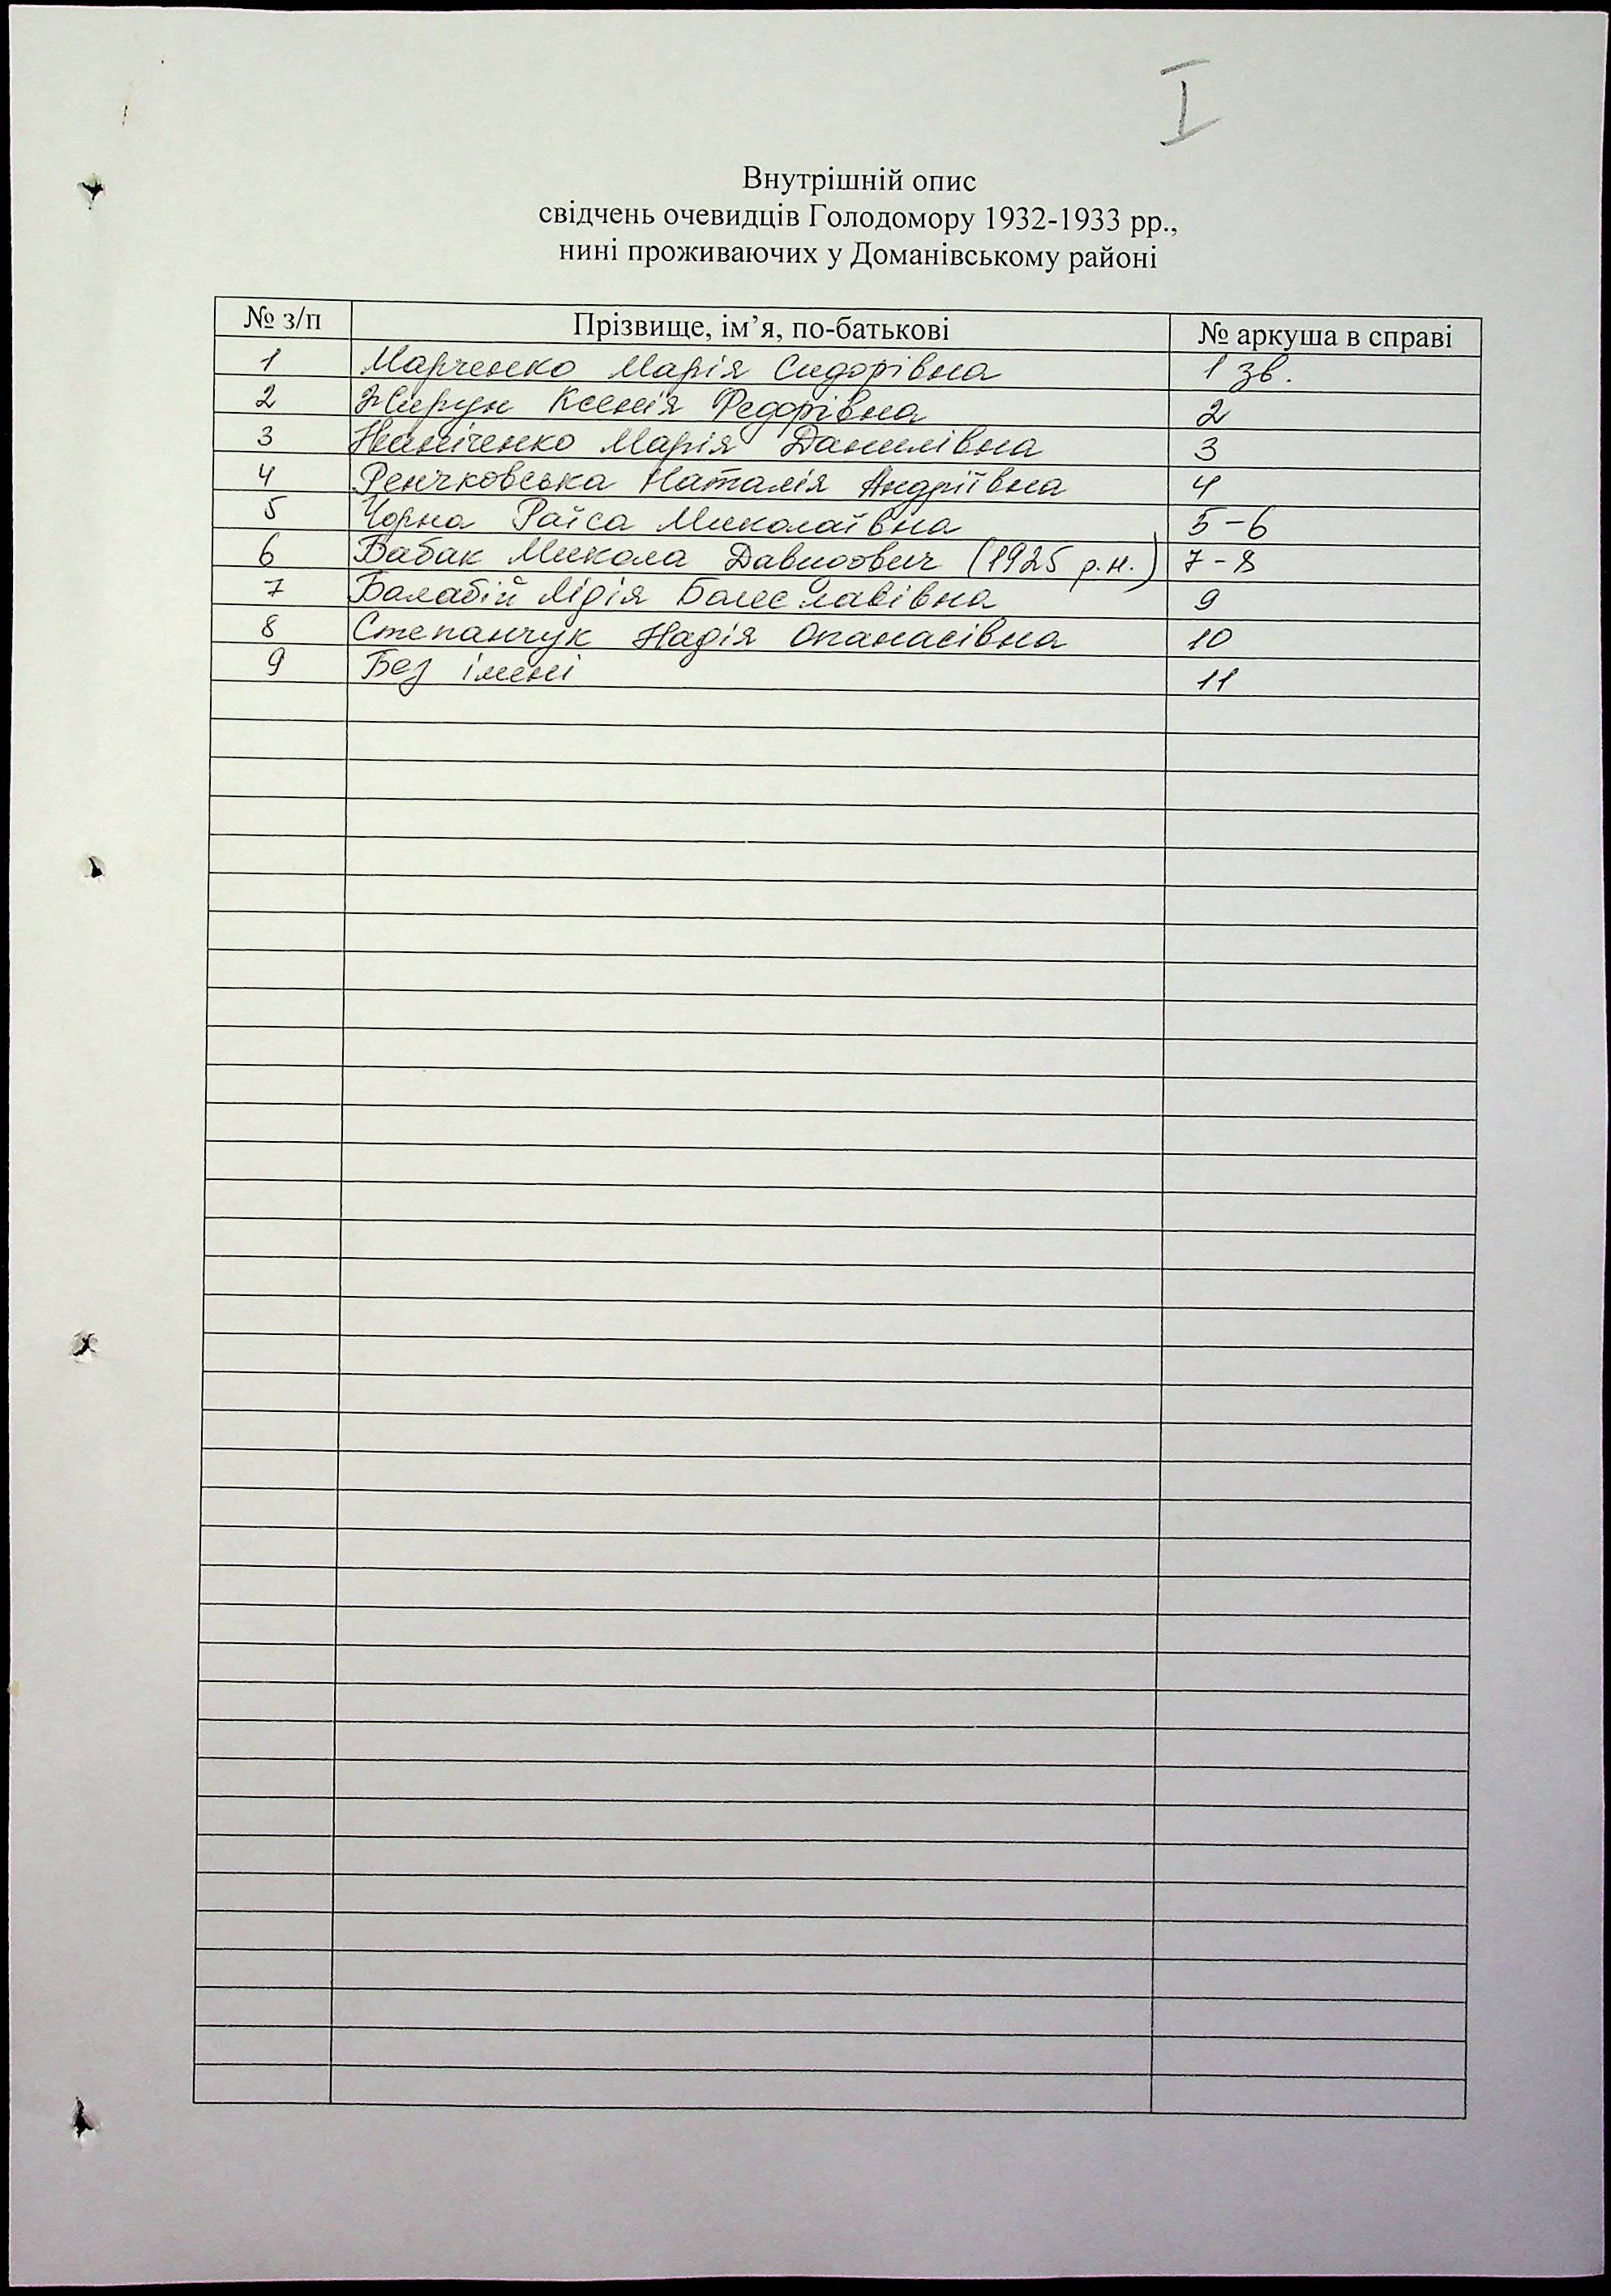 I
Внутрішній опис
свідчень очевидців Голодомору 1932-1933 рр.,
нині проживаючих у Доманівському районі
№ з/п Прізвище, ім’я, по-батькові № аркуша в справі
1 Марченко Марія Сидорівна 1 зв.
2 Жирун Ксенія Федорівна 2
3 Марія Данилівна 3
4 Наталія Андріївна 4
5 Чорна Раїса Миколаївна 5-6
6 Бабак Микола Давидович (1925 р.н.) 7-8
7 Балабій Лідія Болеславівна 9
8 Степанчук Надія Опанасівна 10
9 Без імені 11